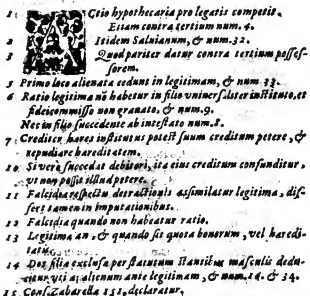 1 ACtio hypothecaria pro legatis competit.
Etiam contra tertium num. 4.
2 Itidem Saluianum, & num. 32.
3 Quod pariter datur contra tertium possessorem.
5 Primo loco alienata cedunt in legitimam, & num 33.
6 Ratio legitimæ nō habetur in filio vniuersaliter instituto, et
fideicommisso non granato, & num. 9.
Nec in filio succedente ab intestato num. 8.
7 Creditor hæres institutus potest suum creditum petere, &
repudiare hæreditatem.
10 Si vero succedat debitori, ita eius creditum confunditur,
vt non possit illud petere.
11 Falcidia respectu detractionis assimilatur legitima, dif-
fert tamen in imputationibus.
12 Falcidia quando non habeatur ratio.
13 Legitima an, & quando sit quota bonorum, vel hæredi-
tatis.
14 Dos filiæ exclusæ per statutum stantibus masculis dedu-
citur, vti æs alienum ante legitimam, & num. 16. & 34.
15 Cons. Zabarella 151. declaratur.